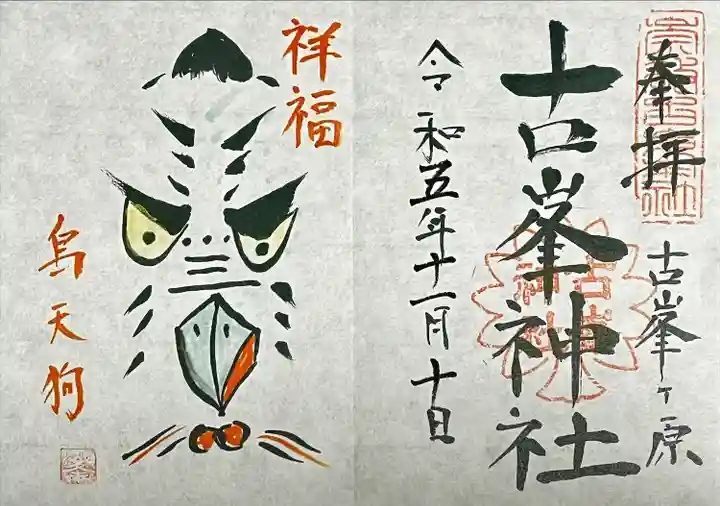 奉拝
古峯ヶ原
古峯神社
令和五年十一月十日
祥福
烏天狗